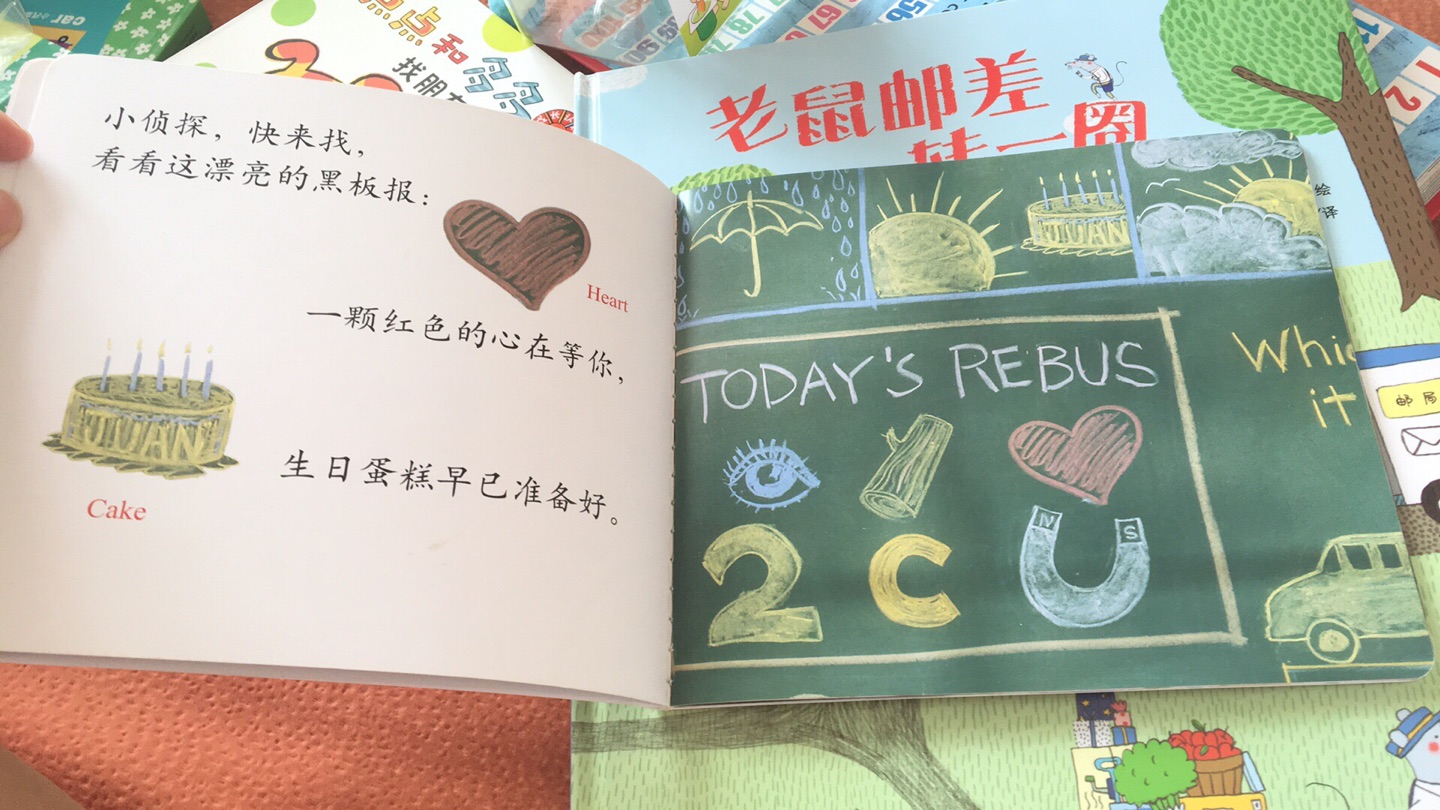 小侦探，快来找，
看看这漂亮的黑板报：
Heart
一颗红色的心在等你，
JUAN
Cake
生日蛋糕早已准备好。
JUAN
TODAY'S REBUS
N S
2 C
it
老鼠邮差
转一圈
点点和
找朋友
car
绘
译
邮局
78
67
56
1
2